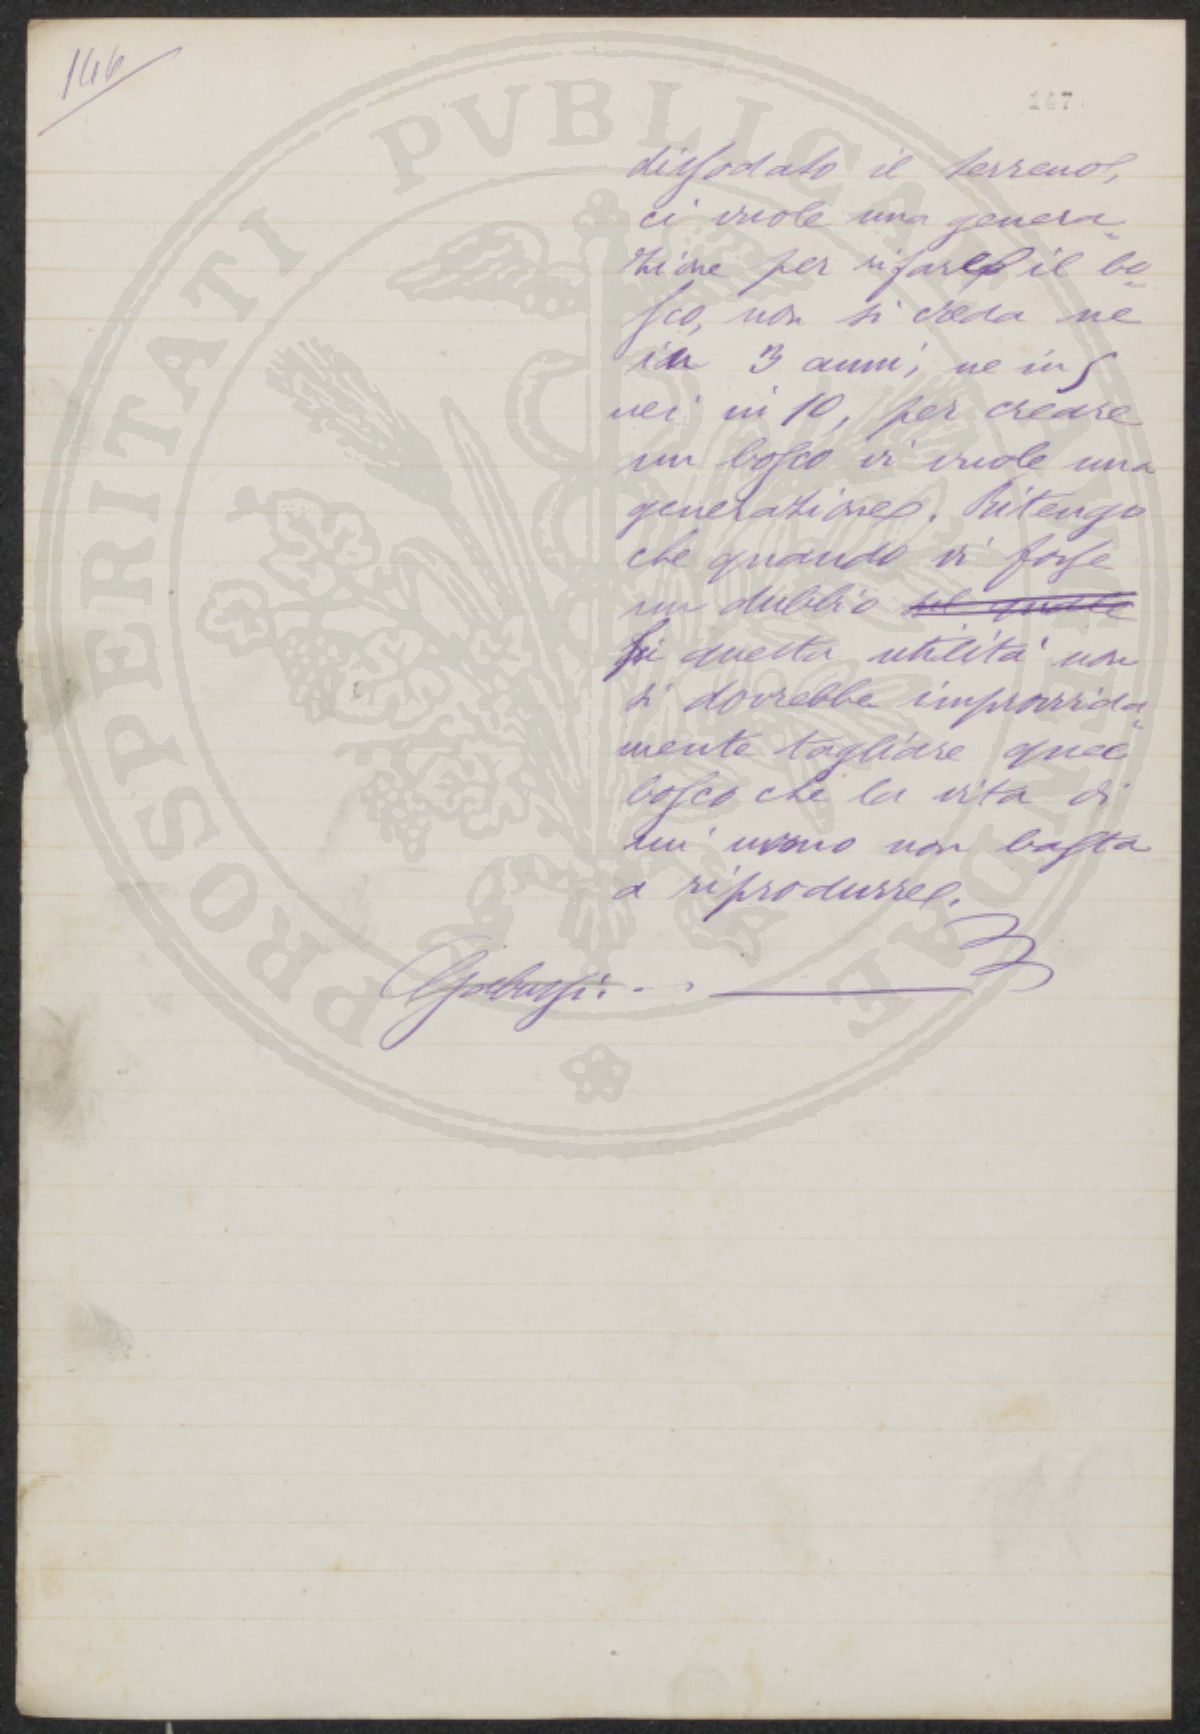 146
147
dissodato il terreno,
ci vuole una genera=
zione per rifare il bo=
sco, non si creda ne
in 3 anni, ne in 5
nei in 10, per creare
un bosco vi vuole una
generazione. Ritengo
che quando vi fosse
un dubbio sul quale
di questa utilità non
si dovrebbe improvvida=
mente tagliare quel
bosco che la vita di
un uomo non basta
a riprodurre.
PROSPERITATI PVBLICAE